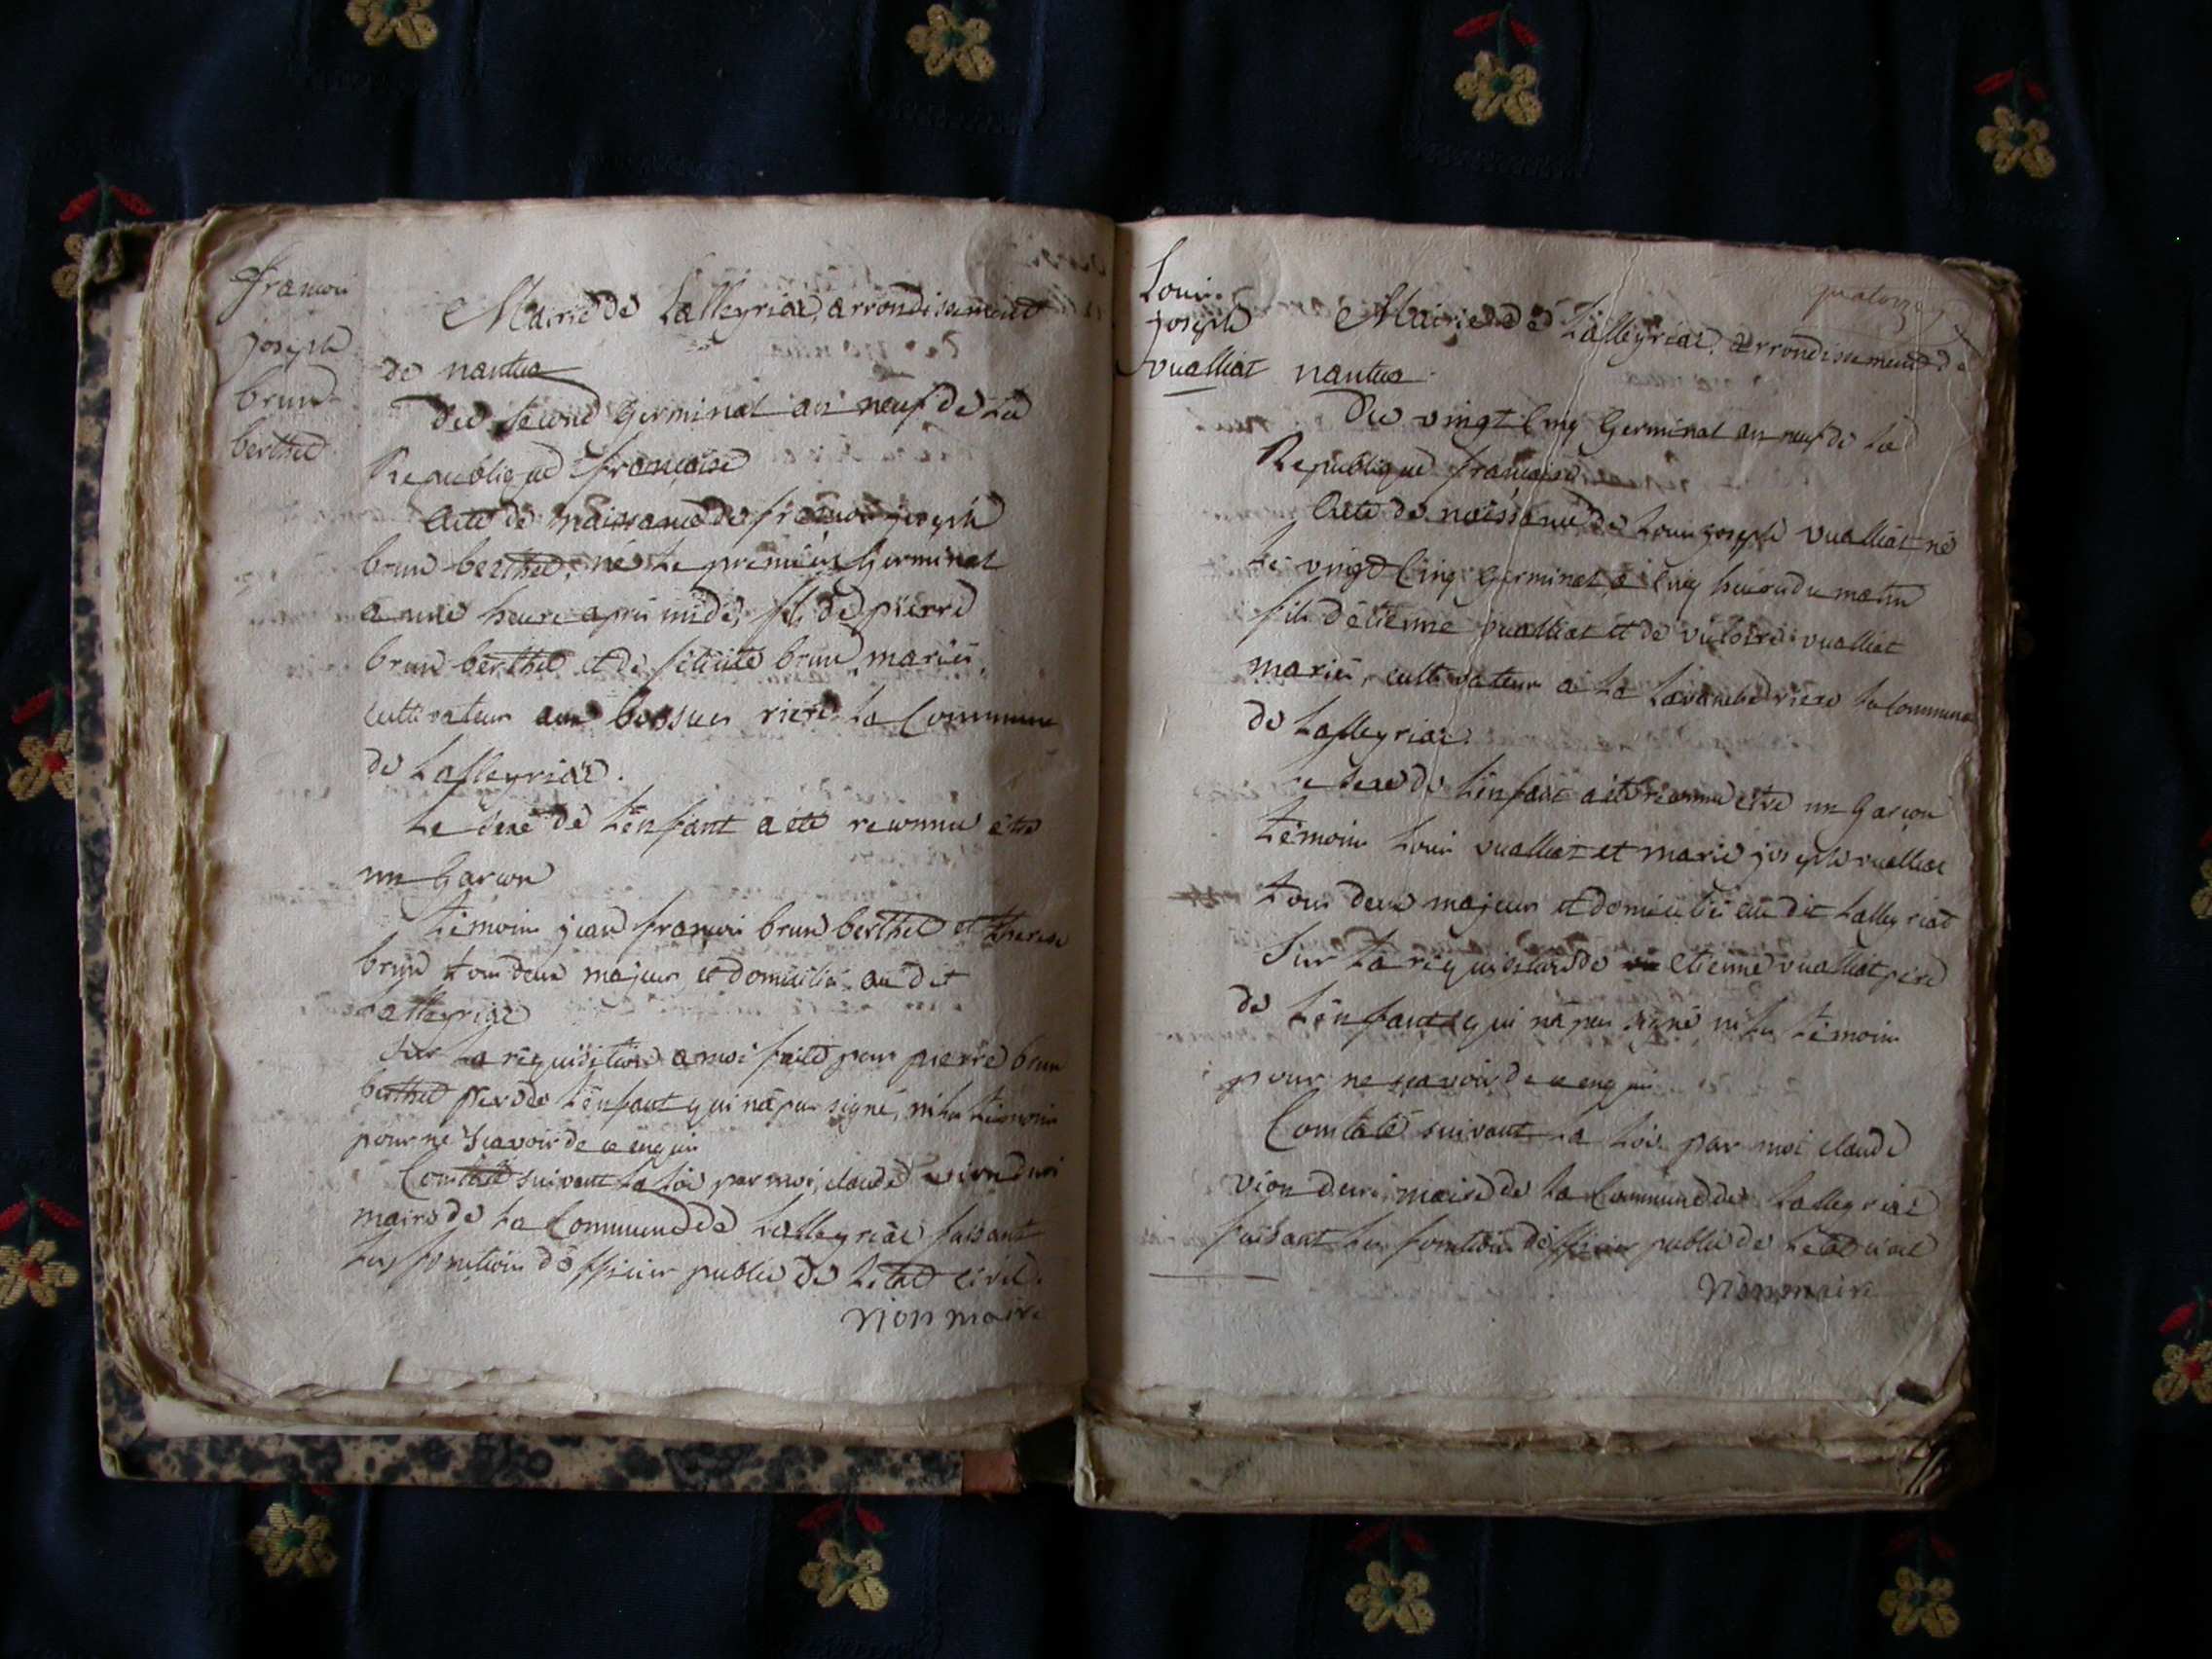 francois
joseph
brun
berthet
Mairie de Lalleyriat, arrondissement
de nantua
Du second Germinal an neuf de La
Republique française
Acte de naissance de francois joseph
brun berthet, né Le premier Germinal
a une heure apres midi, fils de pierre
brun berthet et de félicité brun, mariés,
cultivateurs aux bossues riere La Commune
de Lalleyriat.
Le sexe de L'enfant a été reconnu être
un Garçon
témoins jean francois brun berthet et therese
brun tous deux majeurs et domiciliés au dit
Lalleyriat
Sur La réquisition a moi faite par pierre brun
berthet pere de L'enfant qui n'a pas signé, ni les témoins
pour ne sçavoir de ce enquis
Constaté suivant La Loi par moi, claude vion
maire de La Commune de Lalleyriat faisant
Les fonctions d'officier public de L'état civil.
vion maire
quatorze
Louis
joseph
vualliat
Mairie de Lalleyriat, arrondissement de
nantua
Du vingt Cinq Germinal an neuf de La
Republique française
Acte de naissance de Louis joseph vualliat né
Le vingt Cinq Germinal a Cinq heures du matin
fils d'étienne vualliat et de victoire vualliat
mariés, cultivateurs a La Lavanche riere La Commune
de Lalleyriat.
Le sexe de L'enfant a été reconnu être un Garçon
témoins Louis vualliat et marie joseph vualliat
tous deux majeurs et domiciliés au dit Lalleyriat
Sur La réquisition de etienne vualliat pere
de L'enfant qui n'a pas signé ni les témoins
pour ne sçavoir de ce enquis
Constaté suivant La Loi par moi claude
vion maire de La Commune de Lalleyriat
faisant Les fonctions d'officier public de L'état civil
vion maire